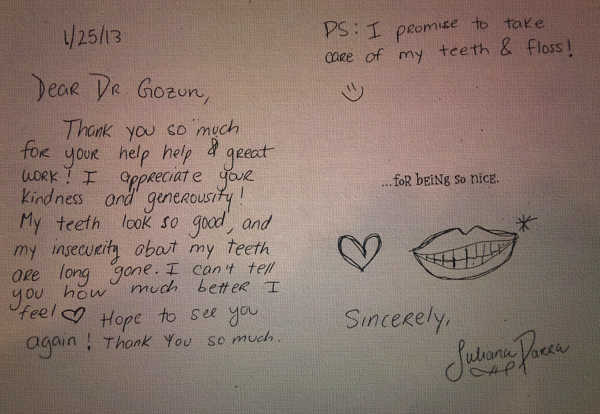 1/25/13
Dear Dr. Gozun,
Thank you so much
for your help help & great
work! I appreciate your
kindness and generousity!
My teeth look so good, and
my insecurity about my teeth
are long gone. I can't tell
you how much better I
feel ♡ Hope to see you
again! Thank you so much.
PS: I promise to take
care of my teeth & floss!
...for being so nice.
Sincerely,
Juliana Parra